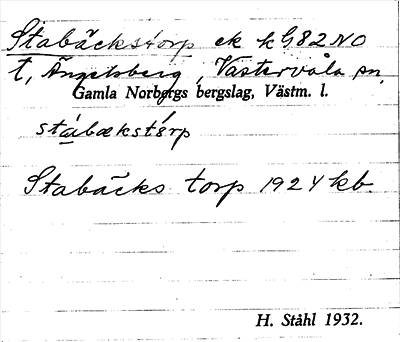 Stabäckstorp ek kG82NO
t, Ängelsberg, Västervåla sn,
Gamla Norbergs bergslag, Västm. l.
stábækstårp
Stabäcks torp 1924 kb.
H. Ståhl 1932.